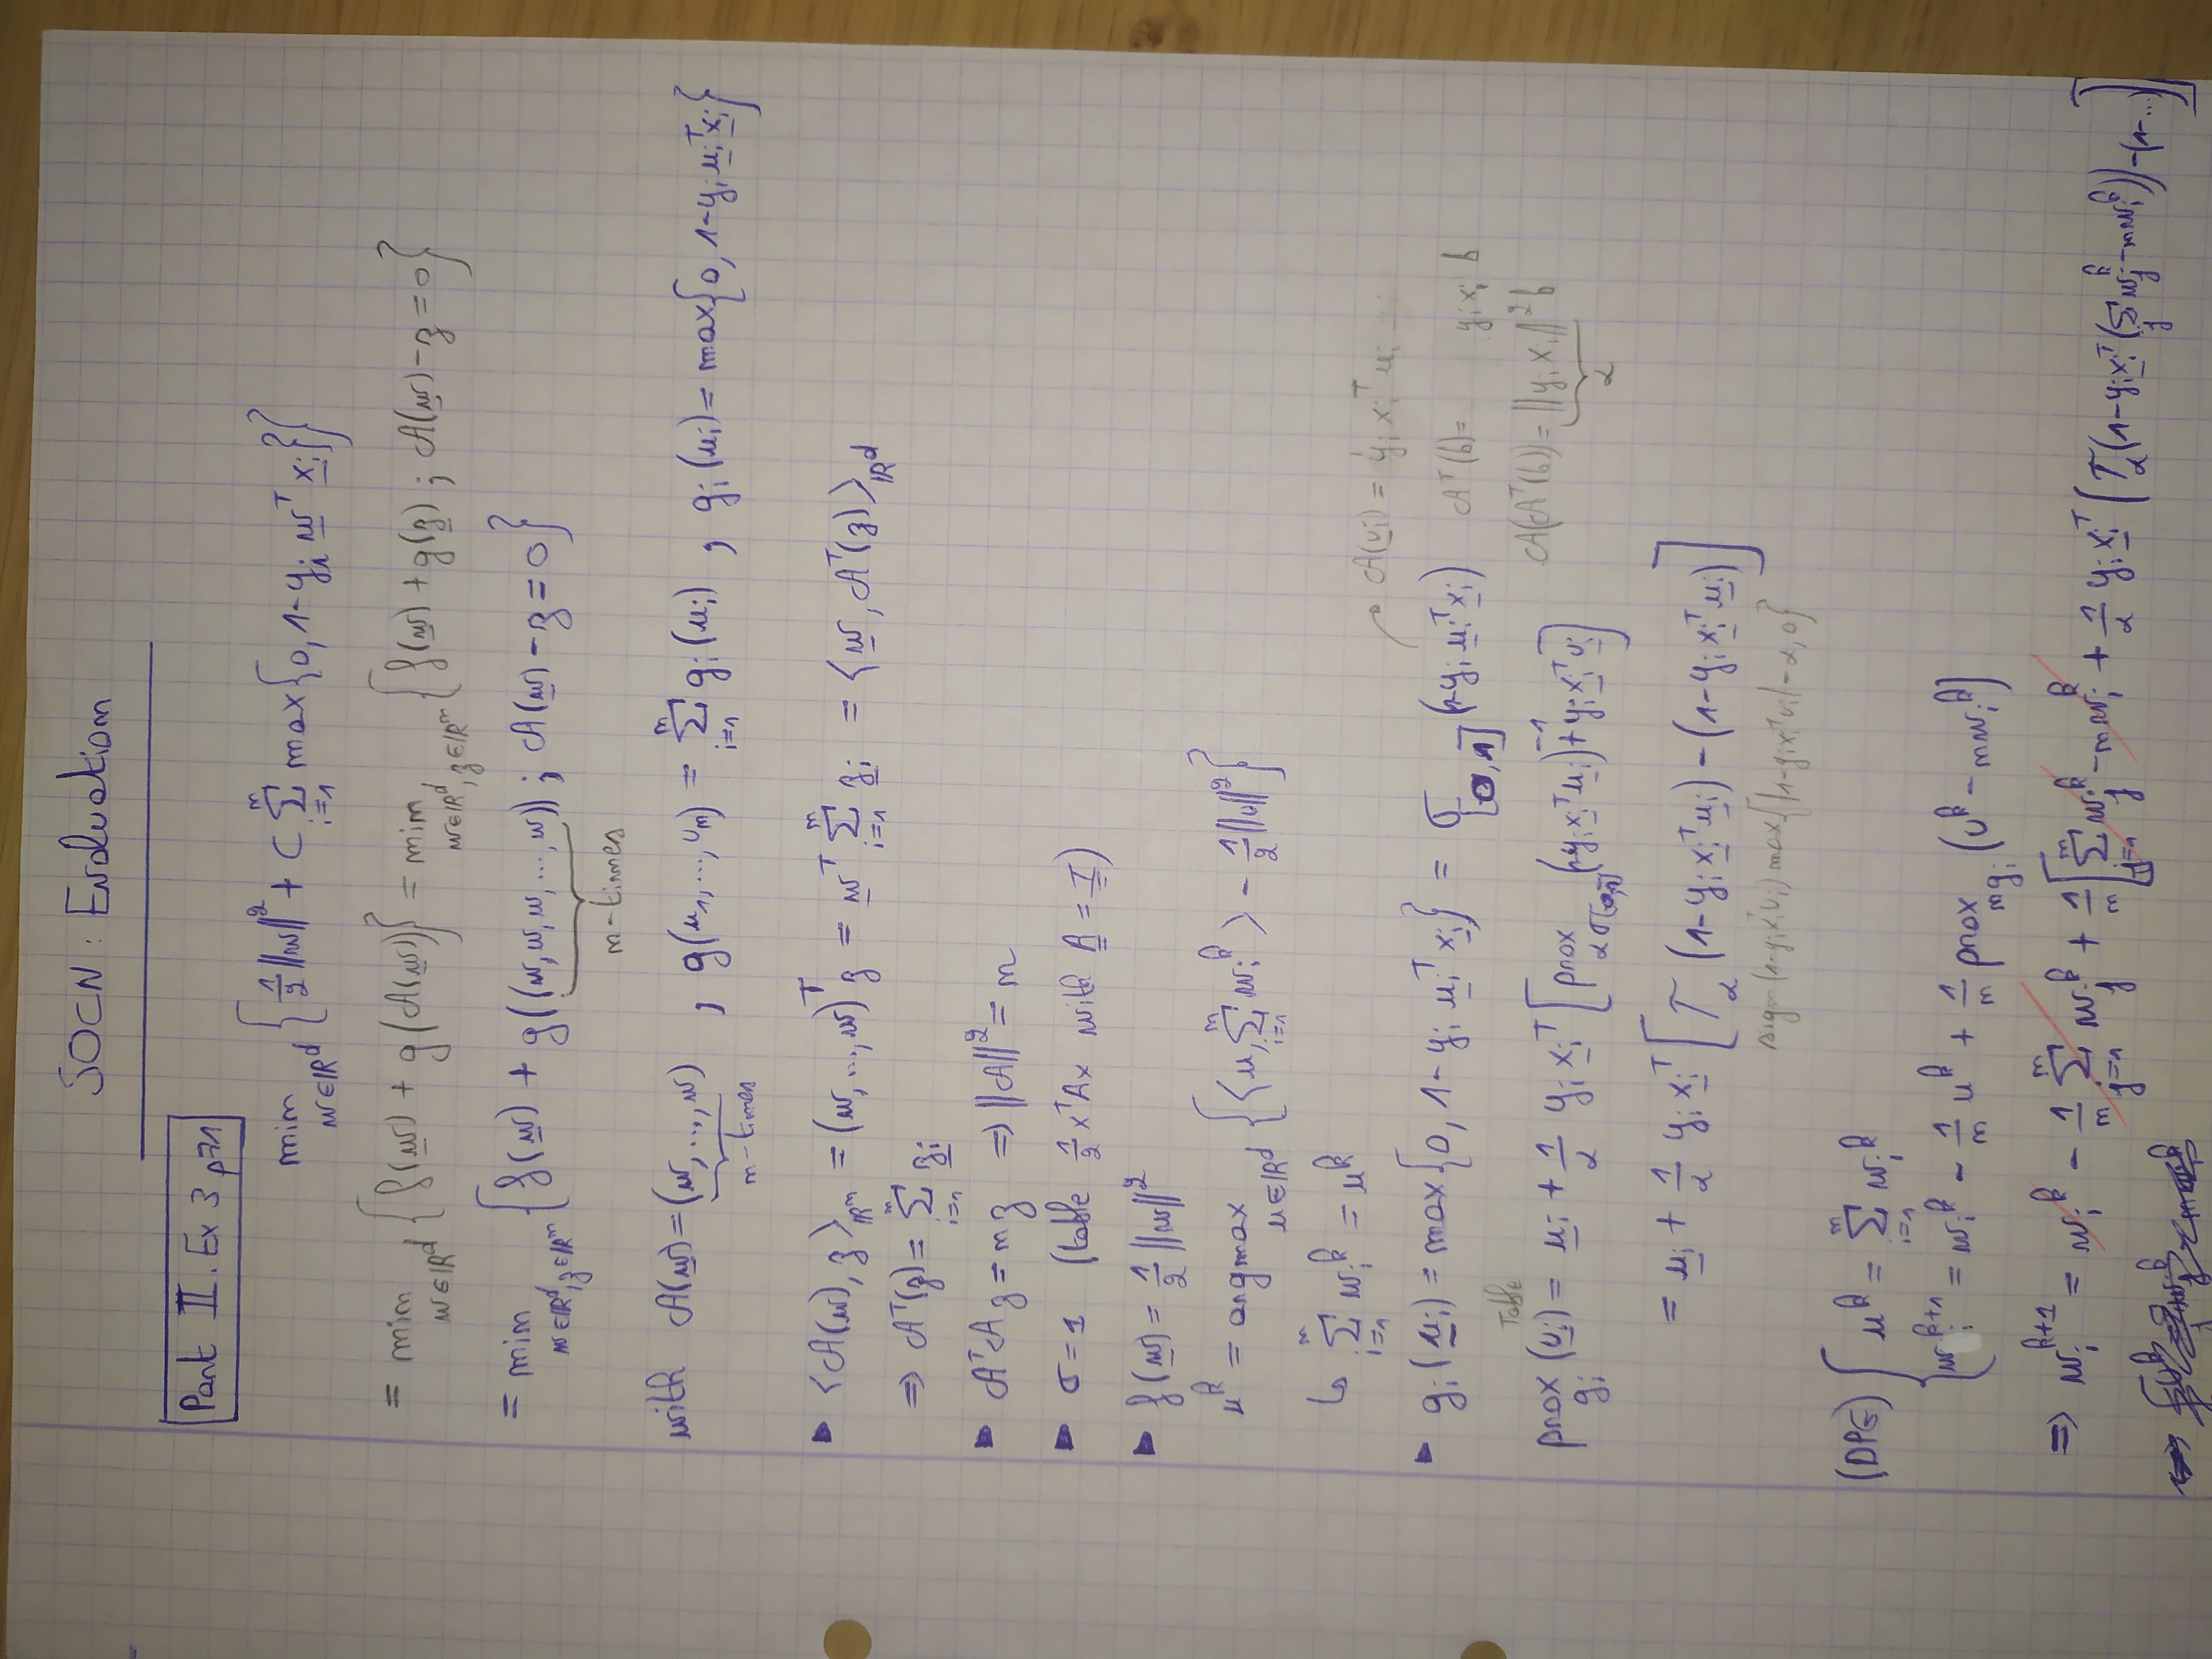 SOCN : Evaluation
Part II. Ex 3 p71
min_{w∈ℝ^d} { 1/2 ‖w‖² + C Σ_{i=1}^m max{0, 1-y_i w^T x_i} }
= min_{w∈ℝ^d} { f(w) + g(A(w)) } = min_{w∈ℝ^d, z∈ℝ^m} { f(w) + g(z) ; A(w) - z = 0 }
= min_{w∈ℝ^d, z∈ℝ^m} { f(w) + g((w, w, w, ..., w)) ; A(w) - z = 0 }
m-times
with A(w) = (w, ..., w) , g(u_1, ..., u_m) = Σ_{i=1}^m g_i(u_i) , g_i(u_i) = max{0, 1-y_i u_i^T x_i}
m-times
▸ ⟨A(w), z⟩_{ℝ^m} = (w, ..., w)^T z = w^T Σ_{i=1}^m z_i = ⟨w, A^T(z)⟩_{ℝ^d}
⇒ A^T(z) = Σ_{i=1}^m z_i
▸ A^T A z = m z ⇒ ‖A‖² = m
▸ σ = 1 (table 1/2 x^T A x with A = I)
▸ f(w) = 1/2 ‖w‖²
u^k = argmax_{u∈ℝ^d} { ⟨u, Σ_{i=1}^m w_i^k⟩ - 1/2 ‖u‖² }
↳ Σ_{i=1}^m w_i^k = u^k
A(u_i) = y_i x_i^T u_i
▸ g_i(u_i) = max{0, 1-y_i u_i^T x_i} = σ_{[0,1]}(1-y_i u_i^T x_i)
A^T(b) = y_i x_i b
Table
prox_{g_i}(u_i) = u_i + 1/α y_i x_i^T [ prox_{ασ_{[0,1]}}(1-y_i x_i^T u_i) -1 + y_i x_i^T u_i ]
A(A^T(b)) = ‖y_i x_i‖² b
α
= u_i + 1/α y_i x_i^T [ T_α (1-y_i x_i^T u_i) - (1-y_i x_i^T u_i) ]
sign(1-y_i x_i^T u_i) max{|1-y_i x_i^T u_i| - α, 0}
(DPG) { u^k = Σ_{i=1}^m w_i^k
w_i^{k+1} = w_i^k - 1/m u^k + 1/m prox_{m g_i}(u^k - m w_i^k)
⇒ w_i^{k+1} = w_i^k - 1/m Σ_{j=1}^m w_j^k + 1/m [ Σ_{j=1}^m w_j^k - m w_i^k + 1/α y_i x_i^T ( T_α(1-y_i x_i^T (Σ_j w_j^k - m w_i^k)) - (1-...) ) ]